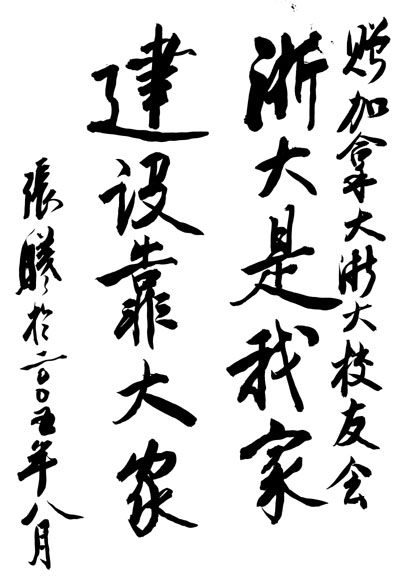 赠加拿大浙大校友会
浙大是我家
建设靠大家
張曦於二〇〇五年八月